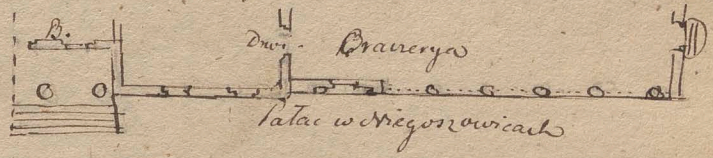 B.
Oranżerya
Pałac w Niegoszowicach